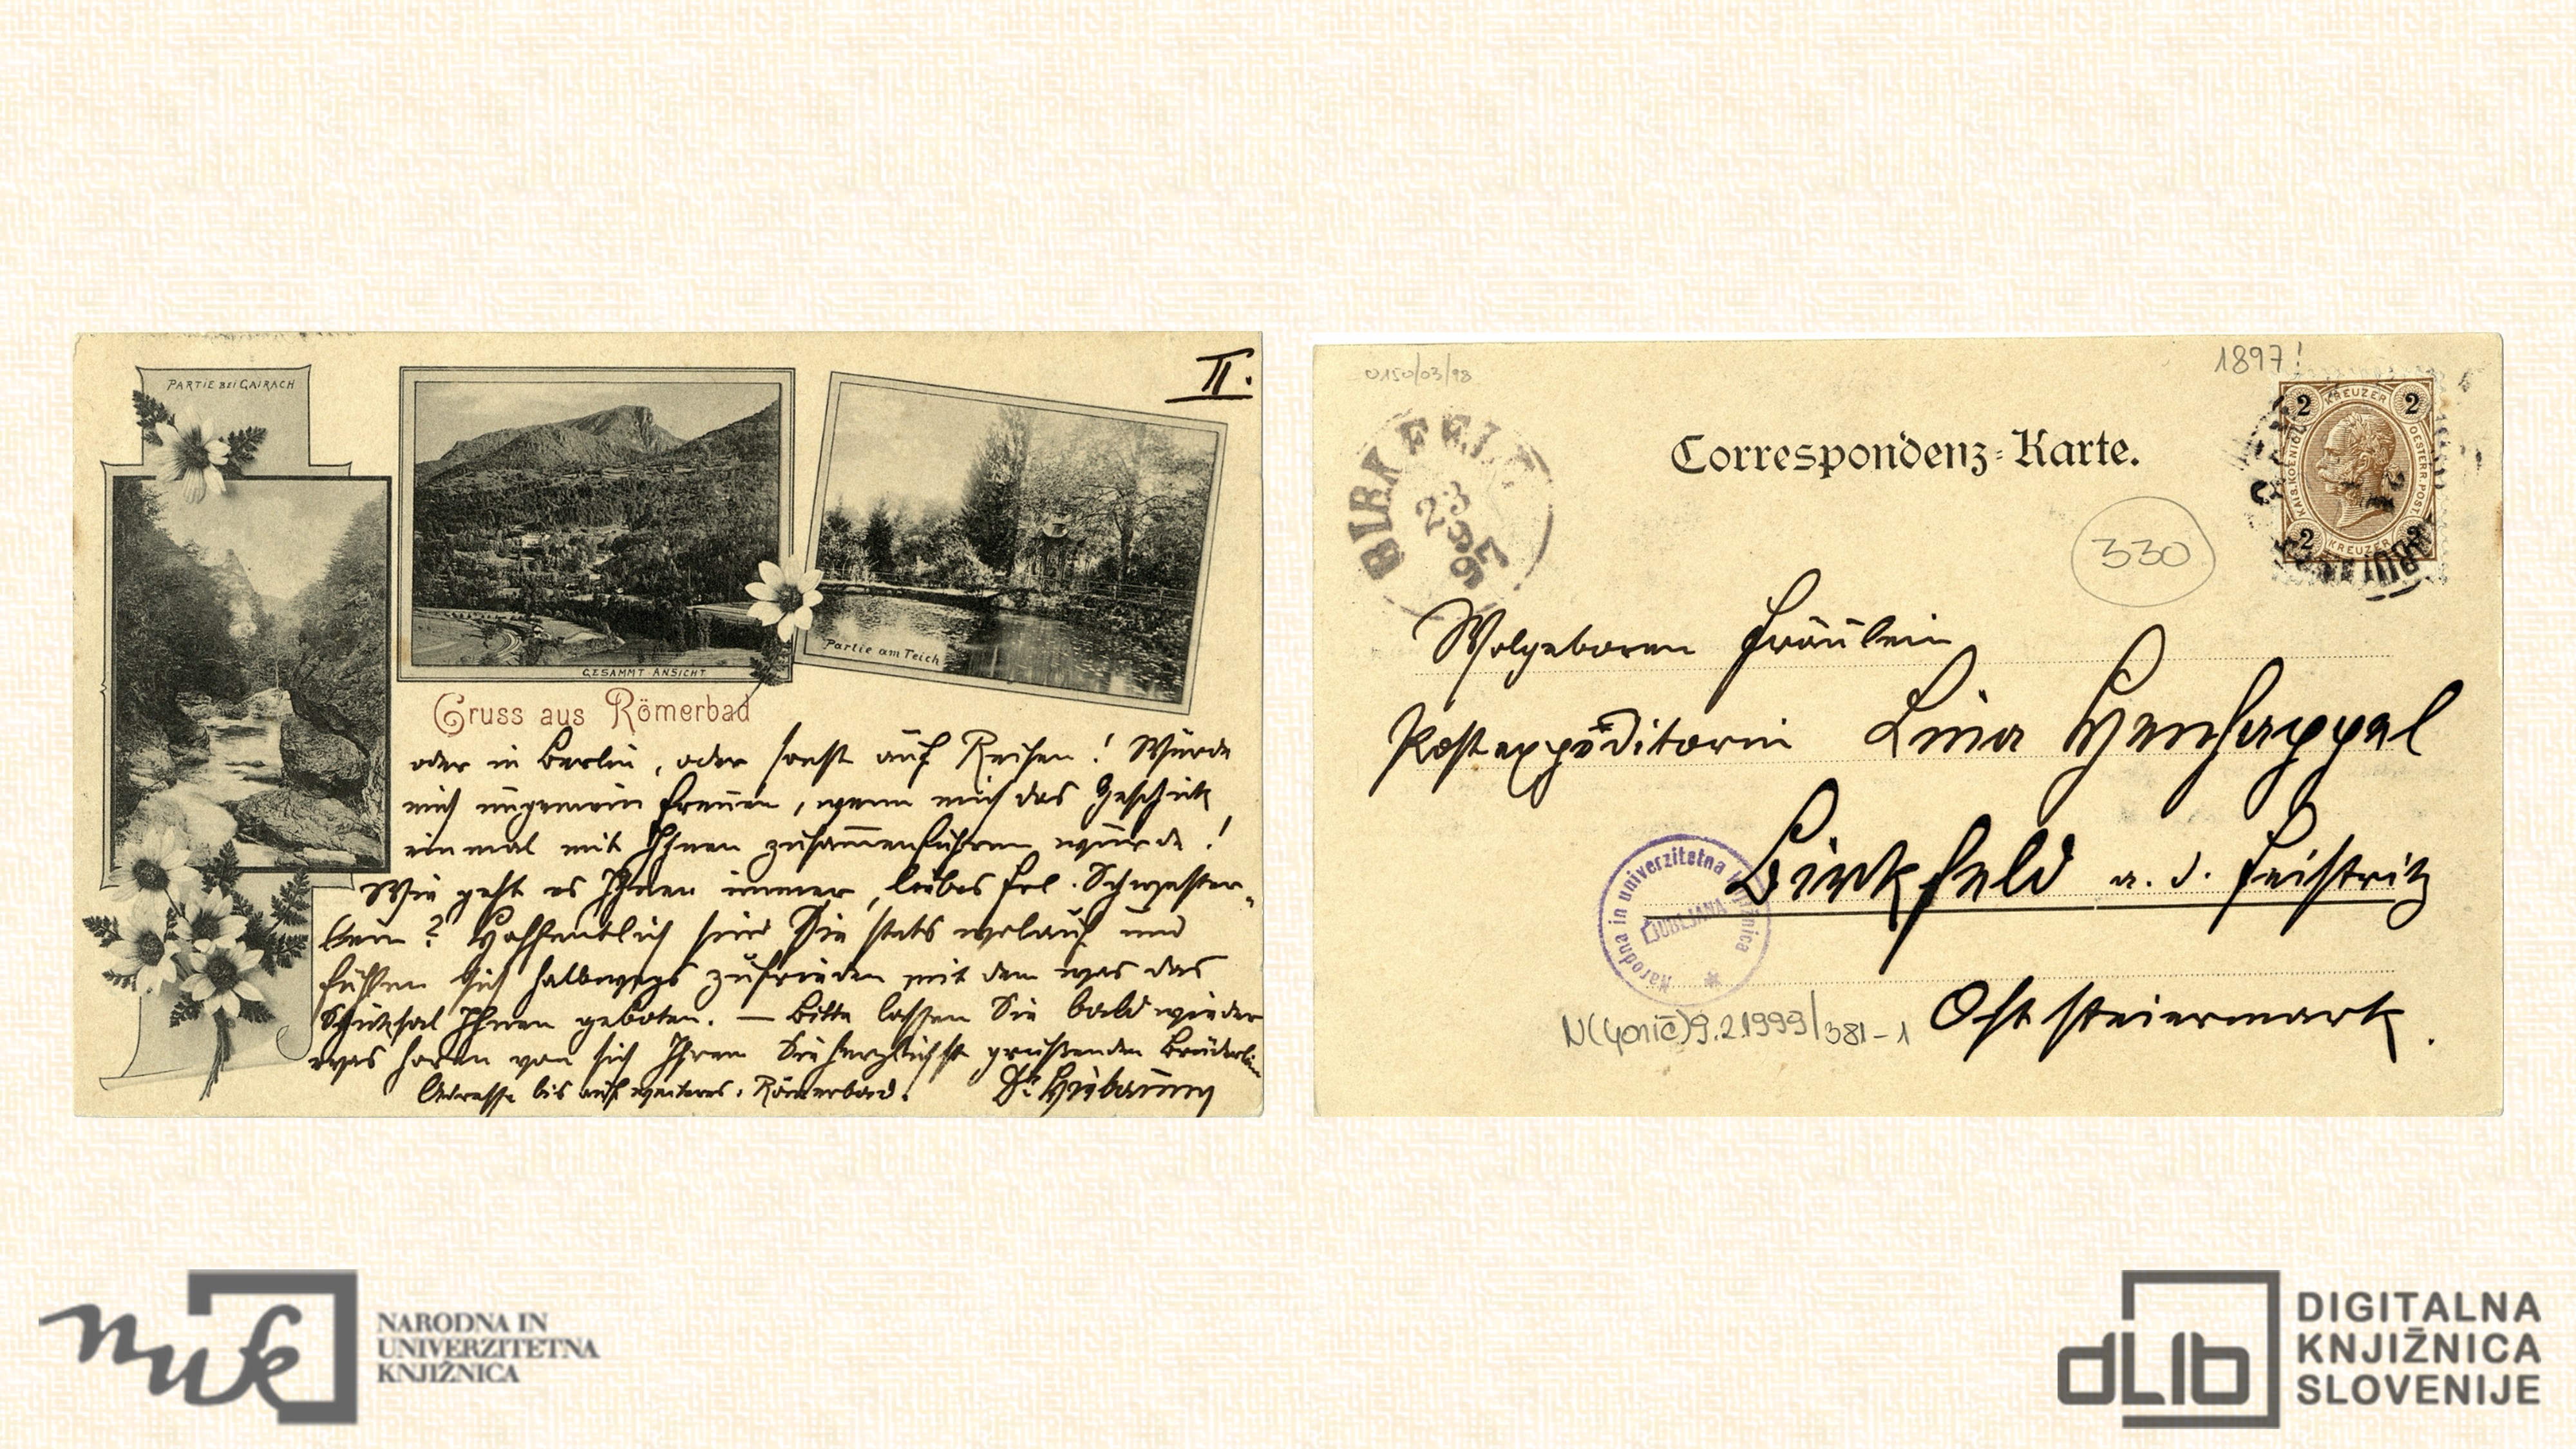 II.
PARTIE BEI GAIRACH
GESAMMT ANSICHT
Partie am Teich
Gruss aus Römerbad
oder in Berlin, oder sonst auf Reisen! Würde
mich ungemein freuen, wenn mich das Geschick
einmal mit Ihnen zusam̅enführen würde!
Wie geht es Ihnen immer, liebes Frl. Schwester-
lein? Hoffentlich sind Sie stets wolauf und
fühlen sich halbwegs zufrieden mit dem was das
Schicksal Ihnen geboten. — Bitte lassen Sie bald wieder
was hören von sich Ihrem Sie herzlichst grüßenden Brüderlein
Adresse bis auf weiteres: Römerbad.
Dr.
0150/03/98
1897!
BIRKFELD
23
9
97
Correspondenz-Karte.
2 KREUZER 2
KAIS. KOENIGL. OESTERR. POST
2 KREUZER 2
330
Wolgeboren Fräulein
Postexpeditorin Lina
Birkfeld a. d. Feistritz
Oststeiermark.
Narodna in univerzitetna knjižnica
LJUBLJANA
9.2.1999/381-1
nuk
NARODNA IN
UNIVERZITETNA
KNJIŽNICA
dLib
DIGITALNA
KNJIŽNICA
SLOVENIJE